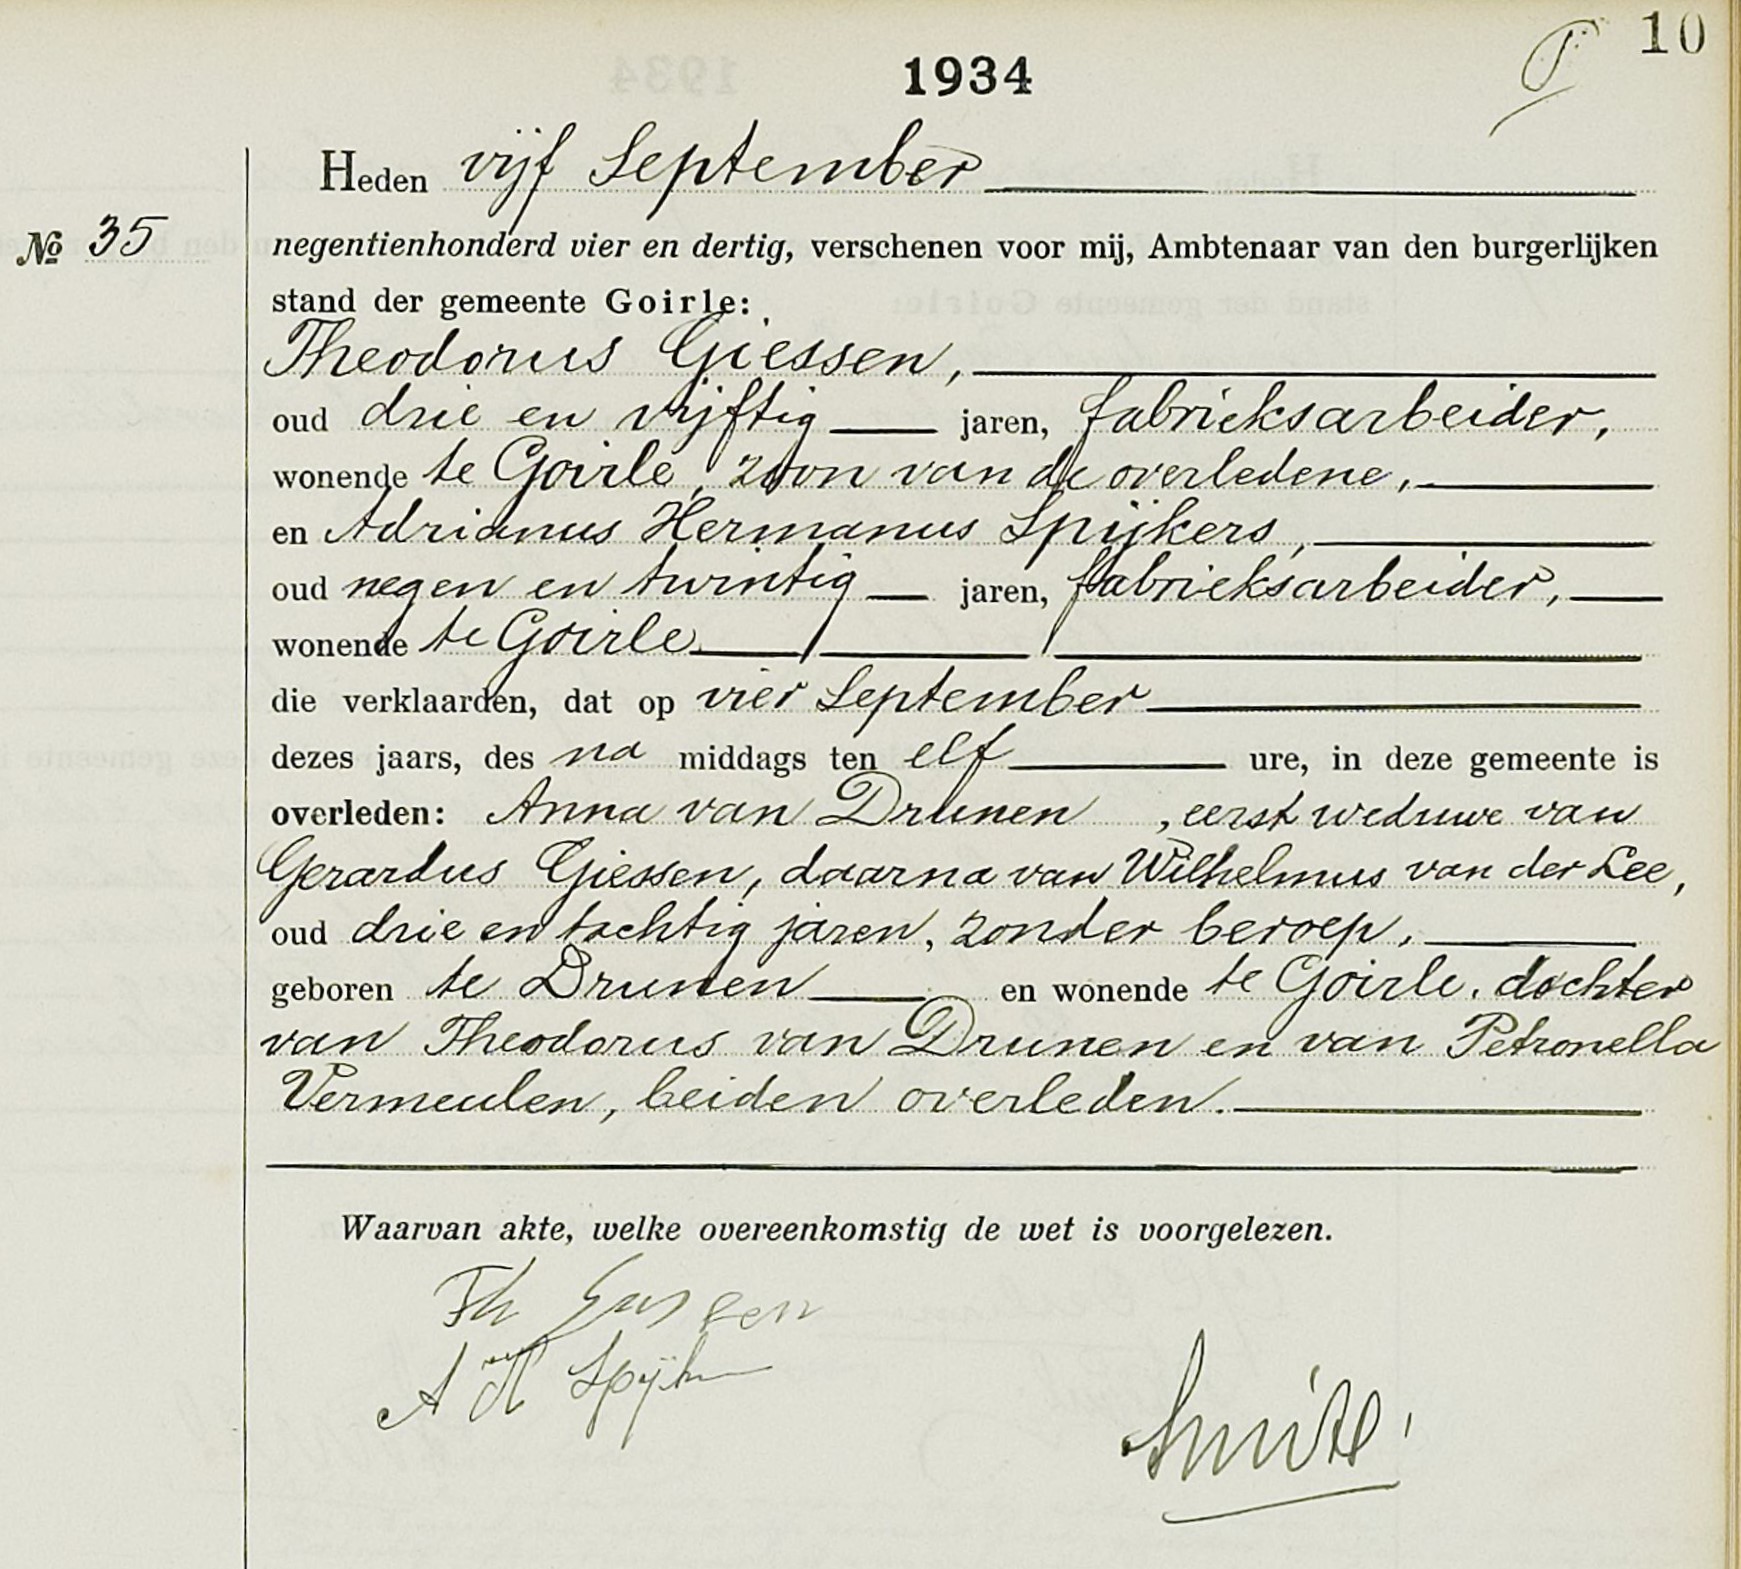 10
1934
Heden vijf September
№ 35
negentienhonderd vier en dertig, verschenen voor mij, Ambtenaar van den burgerlijken
stand der gemeente Goirle:
Theodorus Giessen,
oud drie en vijftig jaren, fabrieksarbeider,
wonende te Goirle, zoon van de overledene,
en Adrianus Hermanus Spijkers,
oud negen en twintig jaren, fabrieksarbeider,
wonende te Goirle
die verklaarden, dat op vier September
dezes jaars, des na middags ten elf ure, in deze gemeente is
overleden: Anna van Drunen, eerst weduwe van
Gerardus Giessen, daarna van Wilhelmus van der Lee,
oud drie en tachtig jaren, zonder beroep,
geboren te Drunen en wonende te Goirle, dochter
van Theodorus van Drunen en van Petronella
Vermeulen, beiden overleden.
Waarvan akte, welke overeenkomstig de wet is voorgelezen.
Th Giessen
A H Spijkers